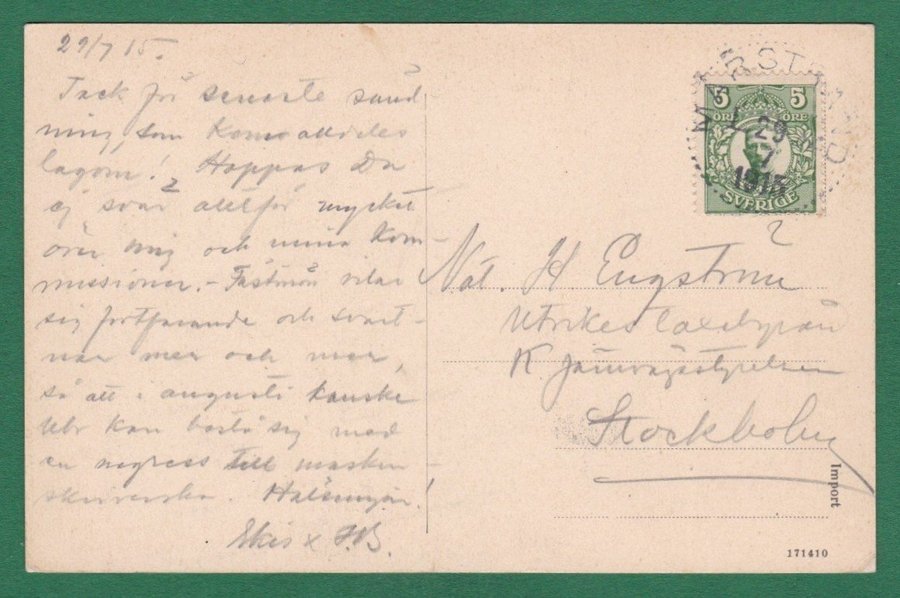 29/7 15.
Tack för senaste sänd
ning, som kom alldeles
lagom! Hoppas Du
ej svär alltför mycket
över mig och mina kom-
missioner. - Fästmön vilar
sig fortfarande och svart-
nar mer och mer,
så att i augusti kanske
kan bestå sig med
en negress till maskin-
skriverska. Hälsningar!
MARSTRAND
29
7
1915
5 5
ÖRE ÖRE
SVERIGE
Not. H Engström
Utrikes taxebyrån
K Järnvägsstyrelsen
Stockholm
Import
171410